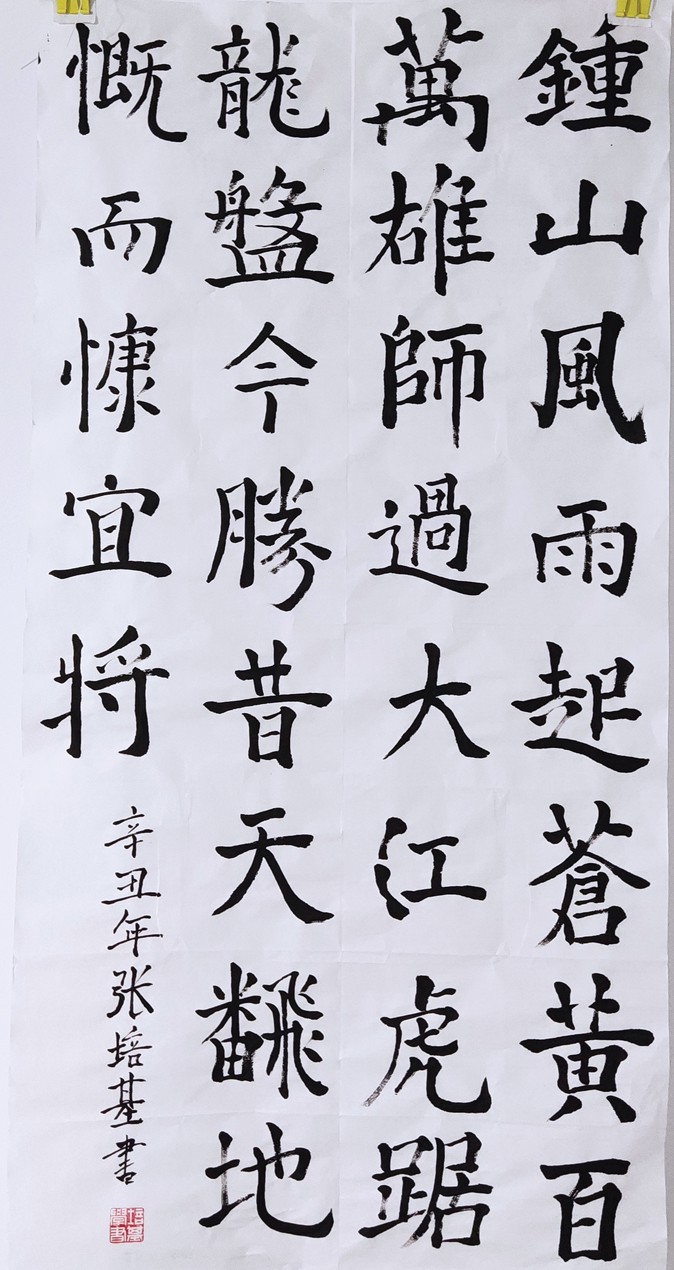 鍾山風雨起蒼黃百
萬雄師過大江虎踞
龍盤今勝昔天飜地
慨而慷宜將
辛丑年张培基書
培基學書